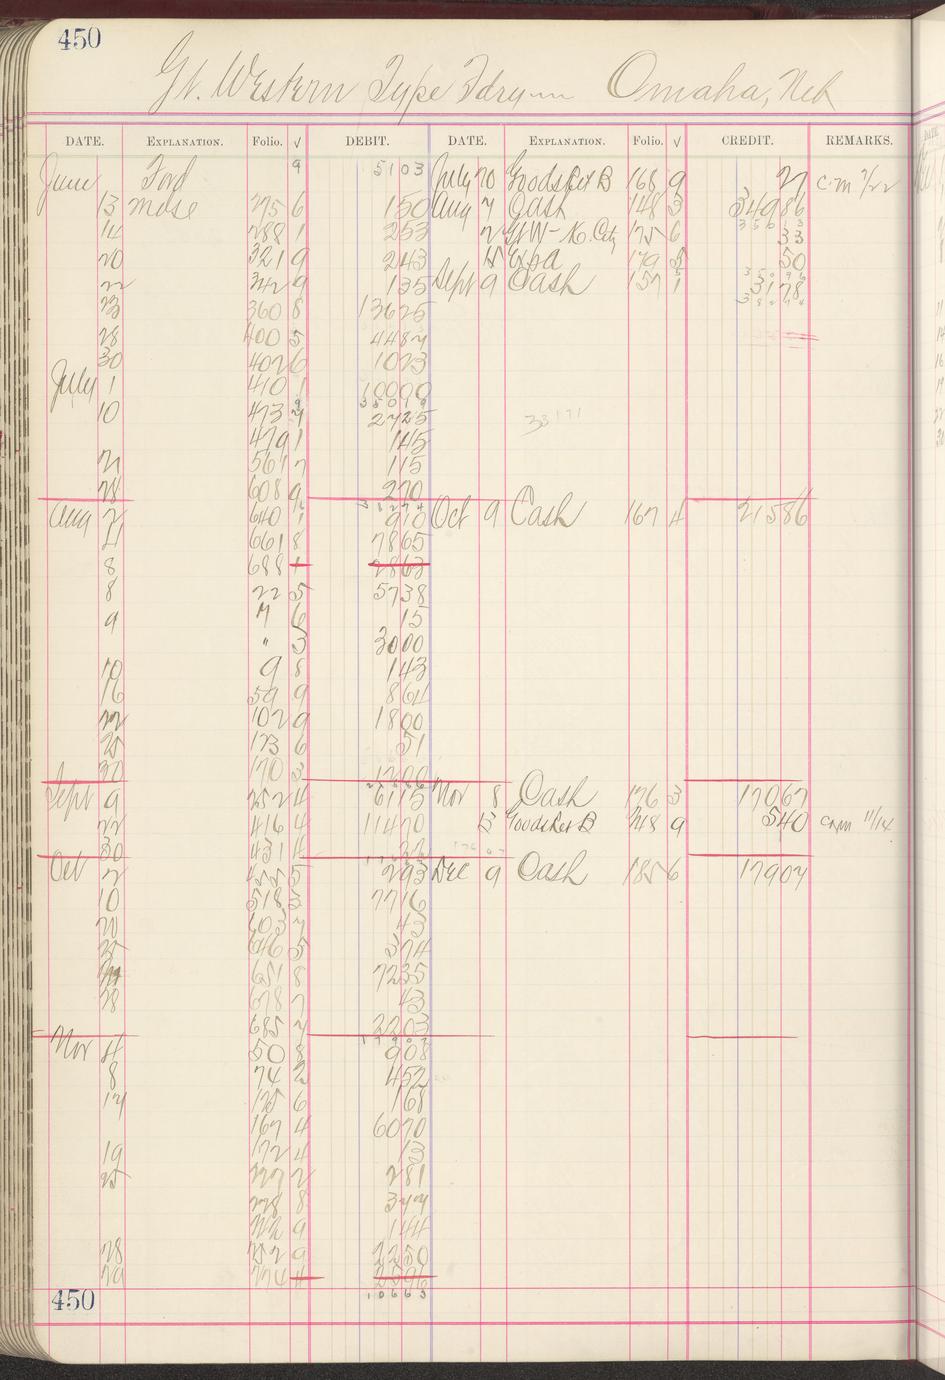 450
Gt. Western Type Fdry Omaha, Neb
DATE. EXPLANATION. Folio. √ DEBIT. DATE. EXPLANATION. Folio. √ CREDIT. REMARKS.
June Ford 9 5103 July 20 Goods Ret B 168 9 27 c.m 7/22
13 Mdse 275 6 150 Aug 7 Cash 148 3 34986
14 288 1 253 33
20 321 9 243 15 Expa 179 5 50
22 342 9 135 Sept 9 Cash 157 1 3178
23 360 8 13625
28 400 5 4487
30 402 6 1023
July 1 410 1 10000
10 473 2725 33171
479 1 145
21 561 7 115
28 608 9 270
Aug 2 640 1 910 Oct 9 Cash 167 4 21586
4 661 8 7865
8 688 2863
8 22 5 5738
9 7 6 15
" 3 3000
10 9 8 143
16 59 9 864
22 102 9 1800
25 173 6 51
30 170 3 1200
Sept 9 252 4 6115 Nov 8 Cash 176 3 17067
22 416 4 11470 13 Goods Ret B 248 9 540 c.m 11/14
30 431 4 22
Oct 2 455 5 293 Dec 9 Cash 185 6 17907
10 518 3 7716
20 603 7 43
25 646 5 374
651 8 7235
28 678 7 43
685 7 2203
Nov 4 50 8 908
8 74 2 452
14 125 6 168
167 4 6070
19 172 4 13
25 227 2 281
228 8 377
9 144
28 252 9 2250
29 274
10663
450